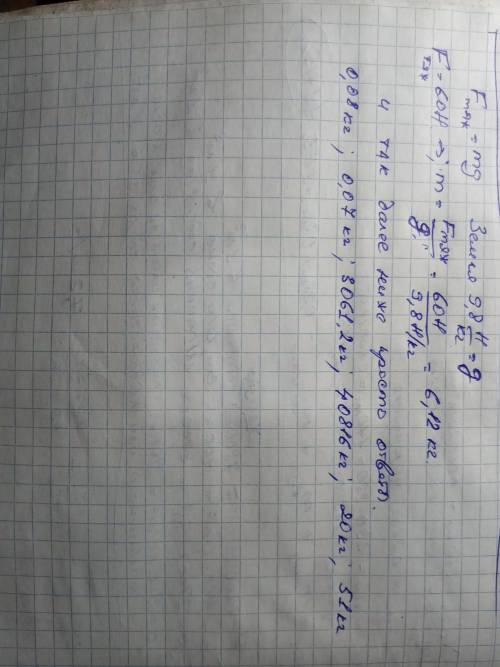 Fтяж = mg   Земля 9,8 Н/кг = g
Fтяж = 60Н => m = Fтяж/g = 60Н/9,8Н/кг = 6,12 кг.
и так далее ниже просто ответы.
0,08 кг; 0,07 кг; 3061,2 кг; 40816 кг; 20 кг; 51 кг